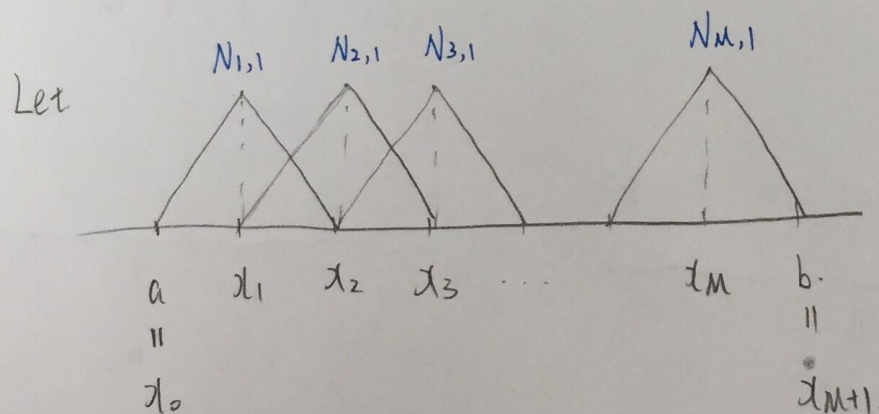 N1,1 N2,1 N3,1 NM,1
Let
a x1 x2 x3 ... xM b.
= =
x0 xM+1